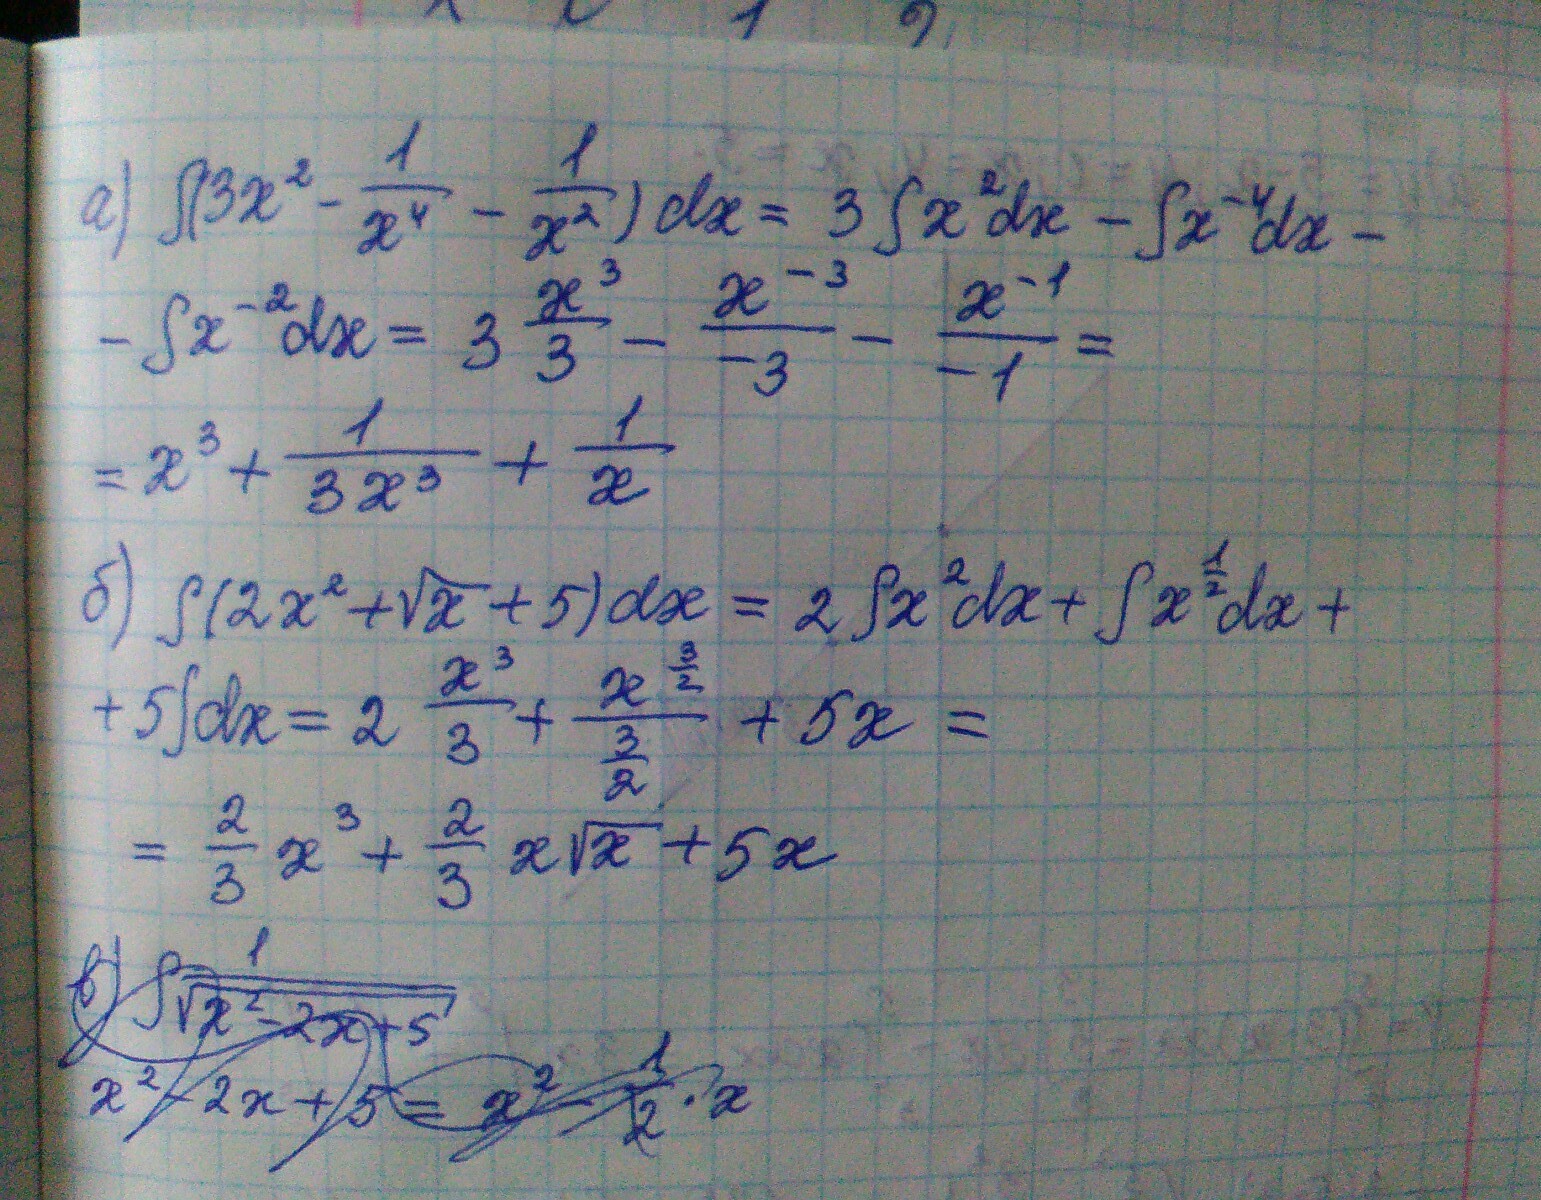 а) ∫(3x² - 1/x⁴ - 1/x²) dx = 3 ∫x²dx - ∫x⁻⁴dx -
- ∫x⁻²dx = 3 x³/3 - x⁻³/-3 - x⁻¹/-1 =
= x³ + 1/3x³ + 1/x
б) ∫(2x² + √x + 5) dx = 2 ∫x²dx + ∫x^(1/2)dx +
+ 5∫dx = 2 x³/3 + x^(3/2)/(3/2) + 5x =
= 2/3 x³ + 2/3 x√x + 5x
в) ∫ 1/√(x² - 2x + 5)
x² - 2x + 5 = x² - 1/2 · x